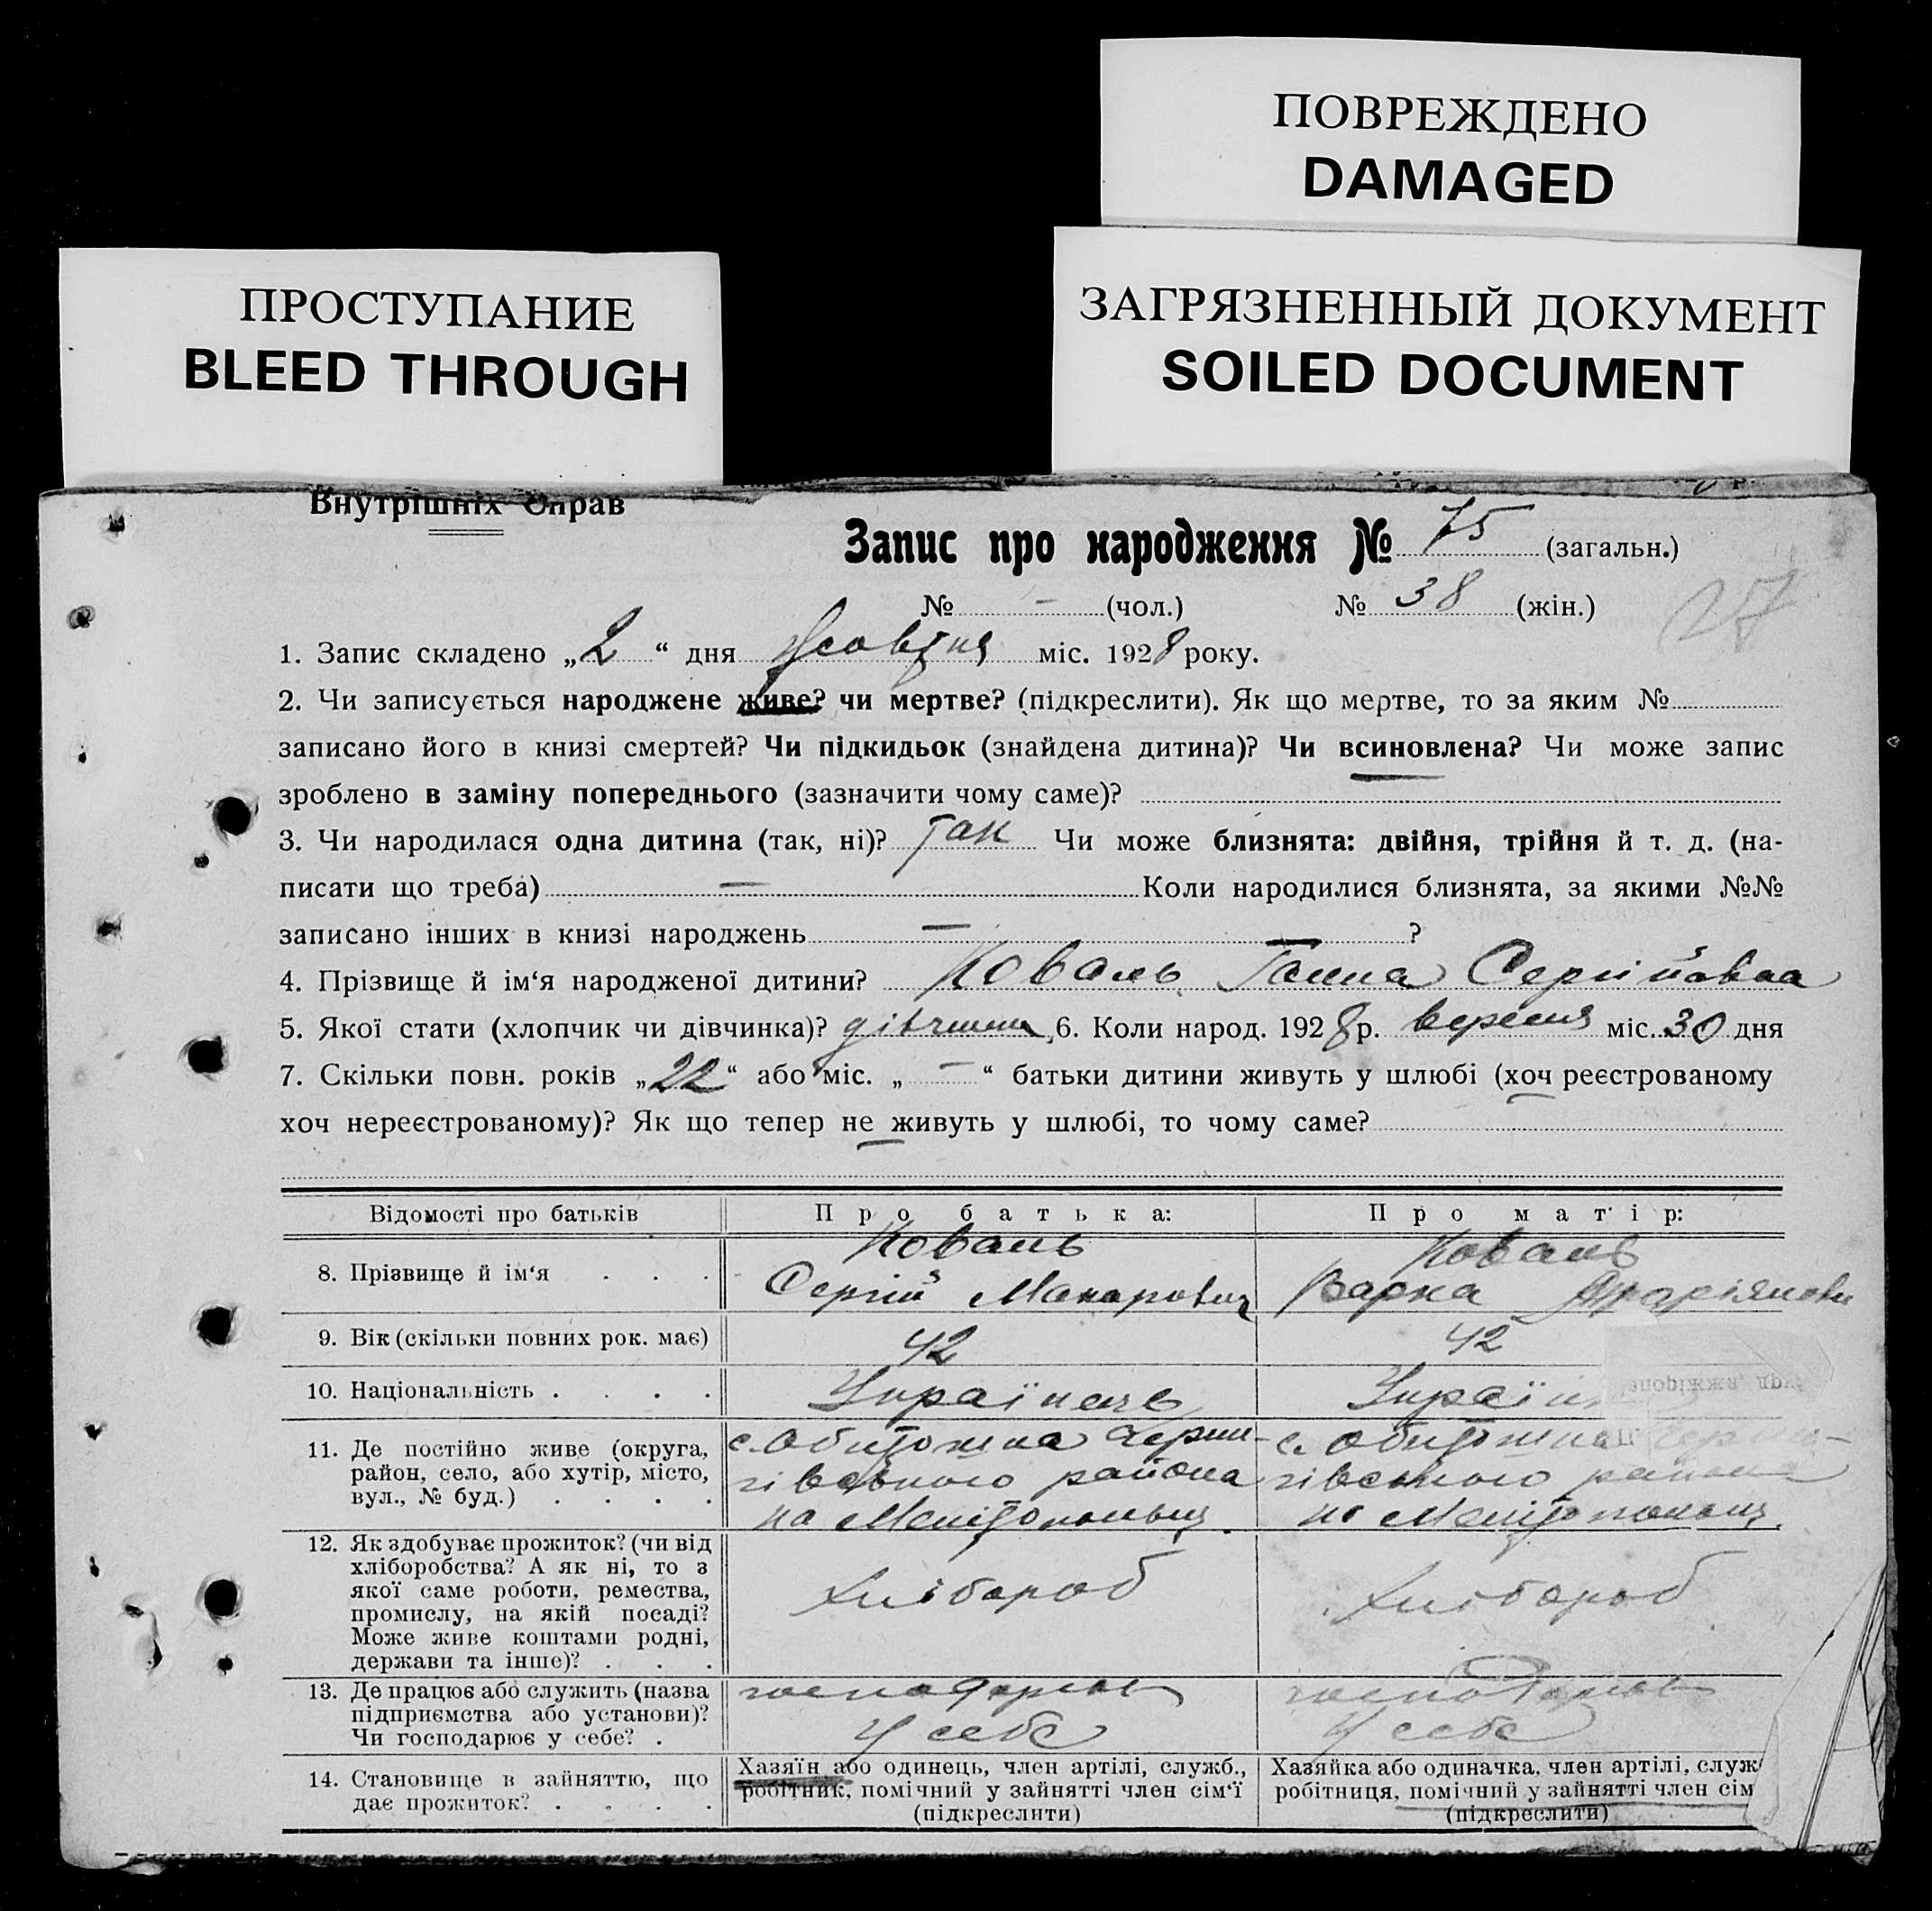 ПОВРЕЖДЕНО
DAMAGED
ПРОСТУПАНИЕ
BLEED THROUGH
ЗАГРЯЗНЕННЫЙ ДОКУМЕНТ
SOILED DOCUMENT
Внутрішніх Справ
Запис про народження № 75 (загальн.)
№ - (чол.) № 38 (жін.)
1. Запис складено „2“ дня Жовтня міс. 1928 року.
2. Чи записується народжене живе? чи мертве? (підкреслити). Як що мертве, то за яким №
записано його в книзі смертей? Чи підкидьок (знайдена дитина)? Чи всиновлена? Чи може запис
зроблено в заміну попереднього (зазначити чому саме)?
3. Чи народилася одна дитина (так, ні)? Так Чи може близнята: двійня, трійня й т. д. (на-
писати що треба) — Коли народилися близнята, за якими №№
записано інших в книзі народжень — ?
4. Прізвище й ім‘я народженої дитини? Коваль Ганна Сергійовна
5. Якої стати (хлопчик чи дівчинка)? дівчинка 6. Коли народ. 1928 р. вересня міс. 30 дня
7. Скільки повн. років „22“ або міс. „ — “ батьки дитини живуть у шлюбі (хоч реєстрованому
хоч нереєстрованому)? Як що тепер не живуть у шлюбі, то чому саме?
Відомості про батьків Про батька: Про матір:
8. Прізвище й ім‘я . . . Коваль Сергій Макарович
Коваль Варка
9. Вік (скільки повних рок. має) 42 42
10. Національність . . . . Українець Україн
11. Де постійно живе (округа, район, село, або хутір, місто, вул., № буд.) . . . .
с. Обиточна Черни-
гівського района
на Мелітопольщ.
с. Обиточна
гівського района
на Мелітопольщ.
12. Як здобуває прожиток? (чи від хліборобства? А як ні, то з якої саме роботи, ремества, промислу, на якій посаді? Може живе коштами родні, держави та інше)? . . .
Хлібороб
Хлібороб
13. Де працює або служить (назва підприємства або установи)? Чи господарює у себе? .
господарює
у себе
господарює
у себе
14. Становище в зайняттю, що дає прожиток? . . . .
Хазяїн або одинець, член артілі, служб.,
робітник, помічний у зайнятті член сім‘ї
(підкреслити)
Хазяйка або одиначка, член артілі, служ
робітниця, помічний у зайнятті член сім
(підкреслити)